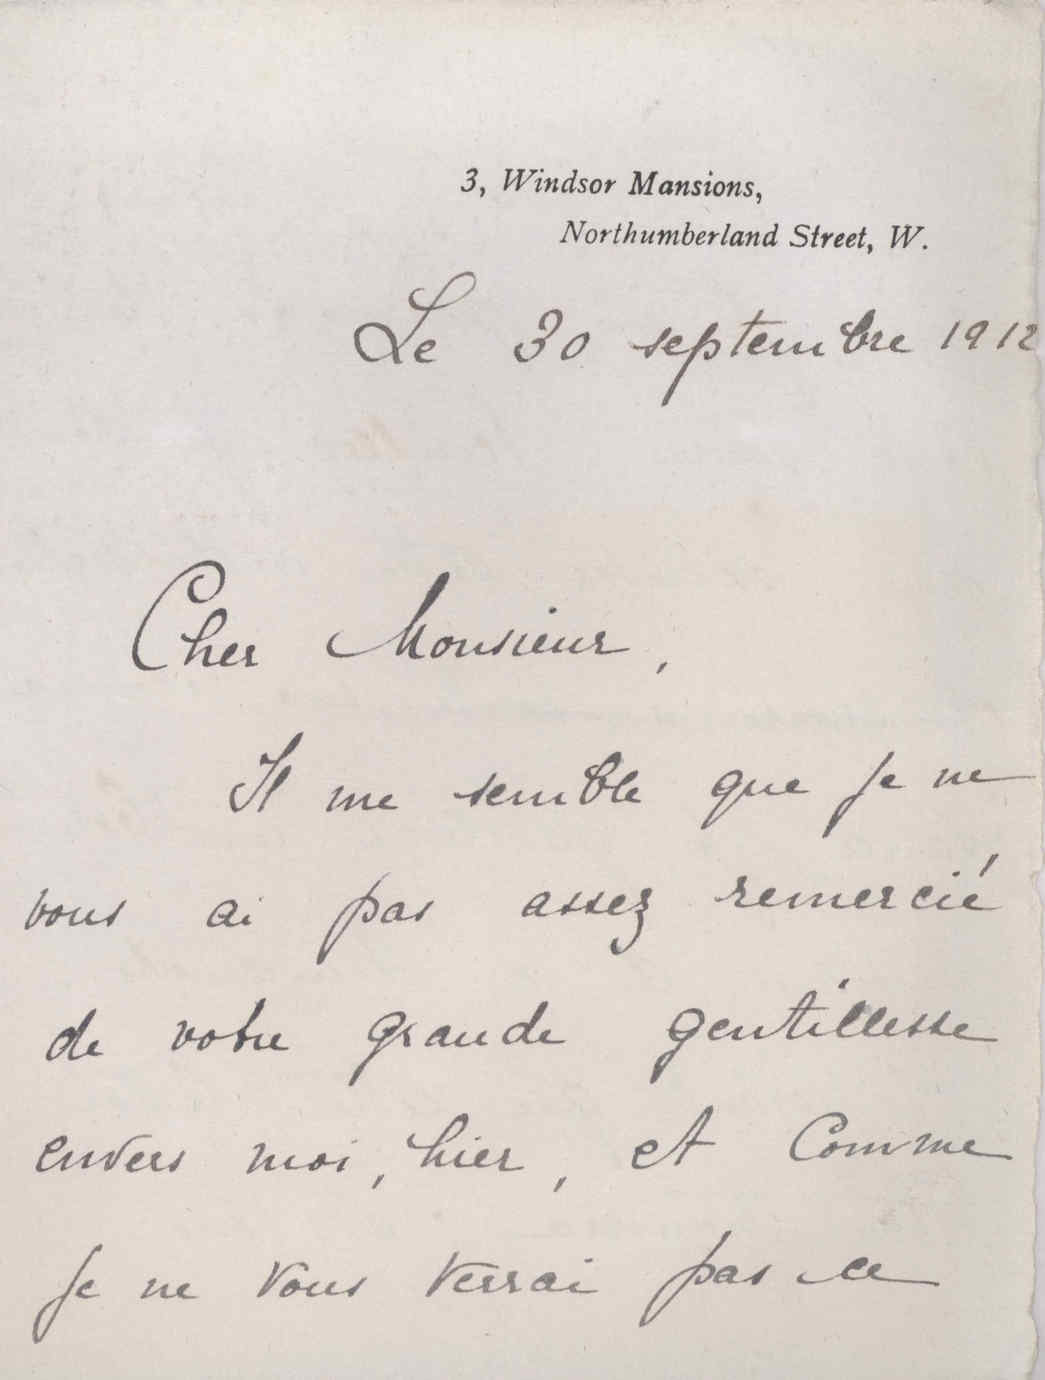 3, Windsor Mansions,
Northumberland Street, W.
Le 30 septembre 1912
Cher Monsieur,
Il me semble que je ne
vous ai pas assez remercié
de votre grande gentillesse
envers moi, hier, et comme
je ne vous verrai pas ce